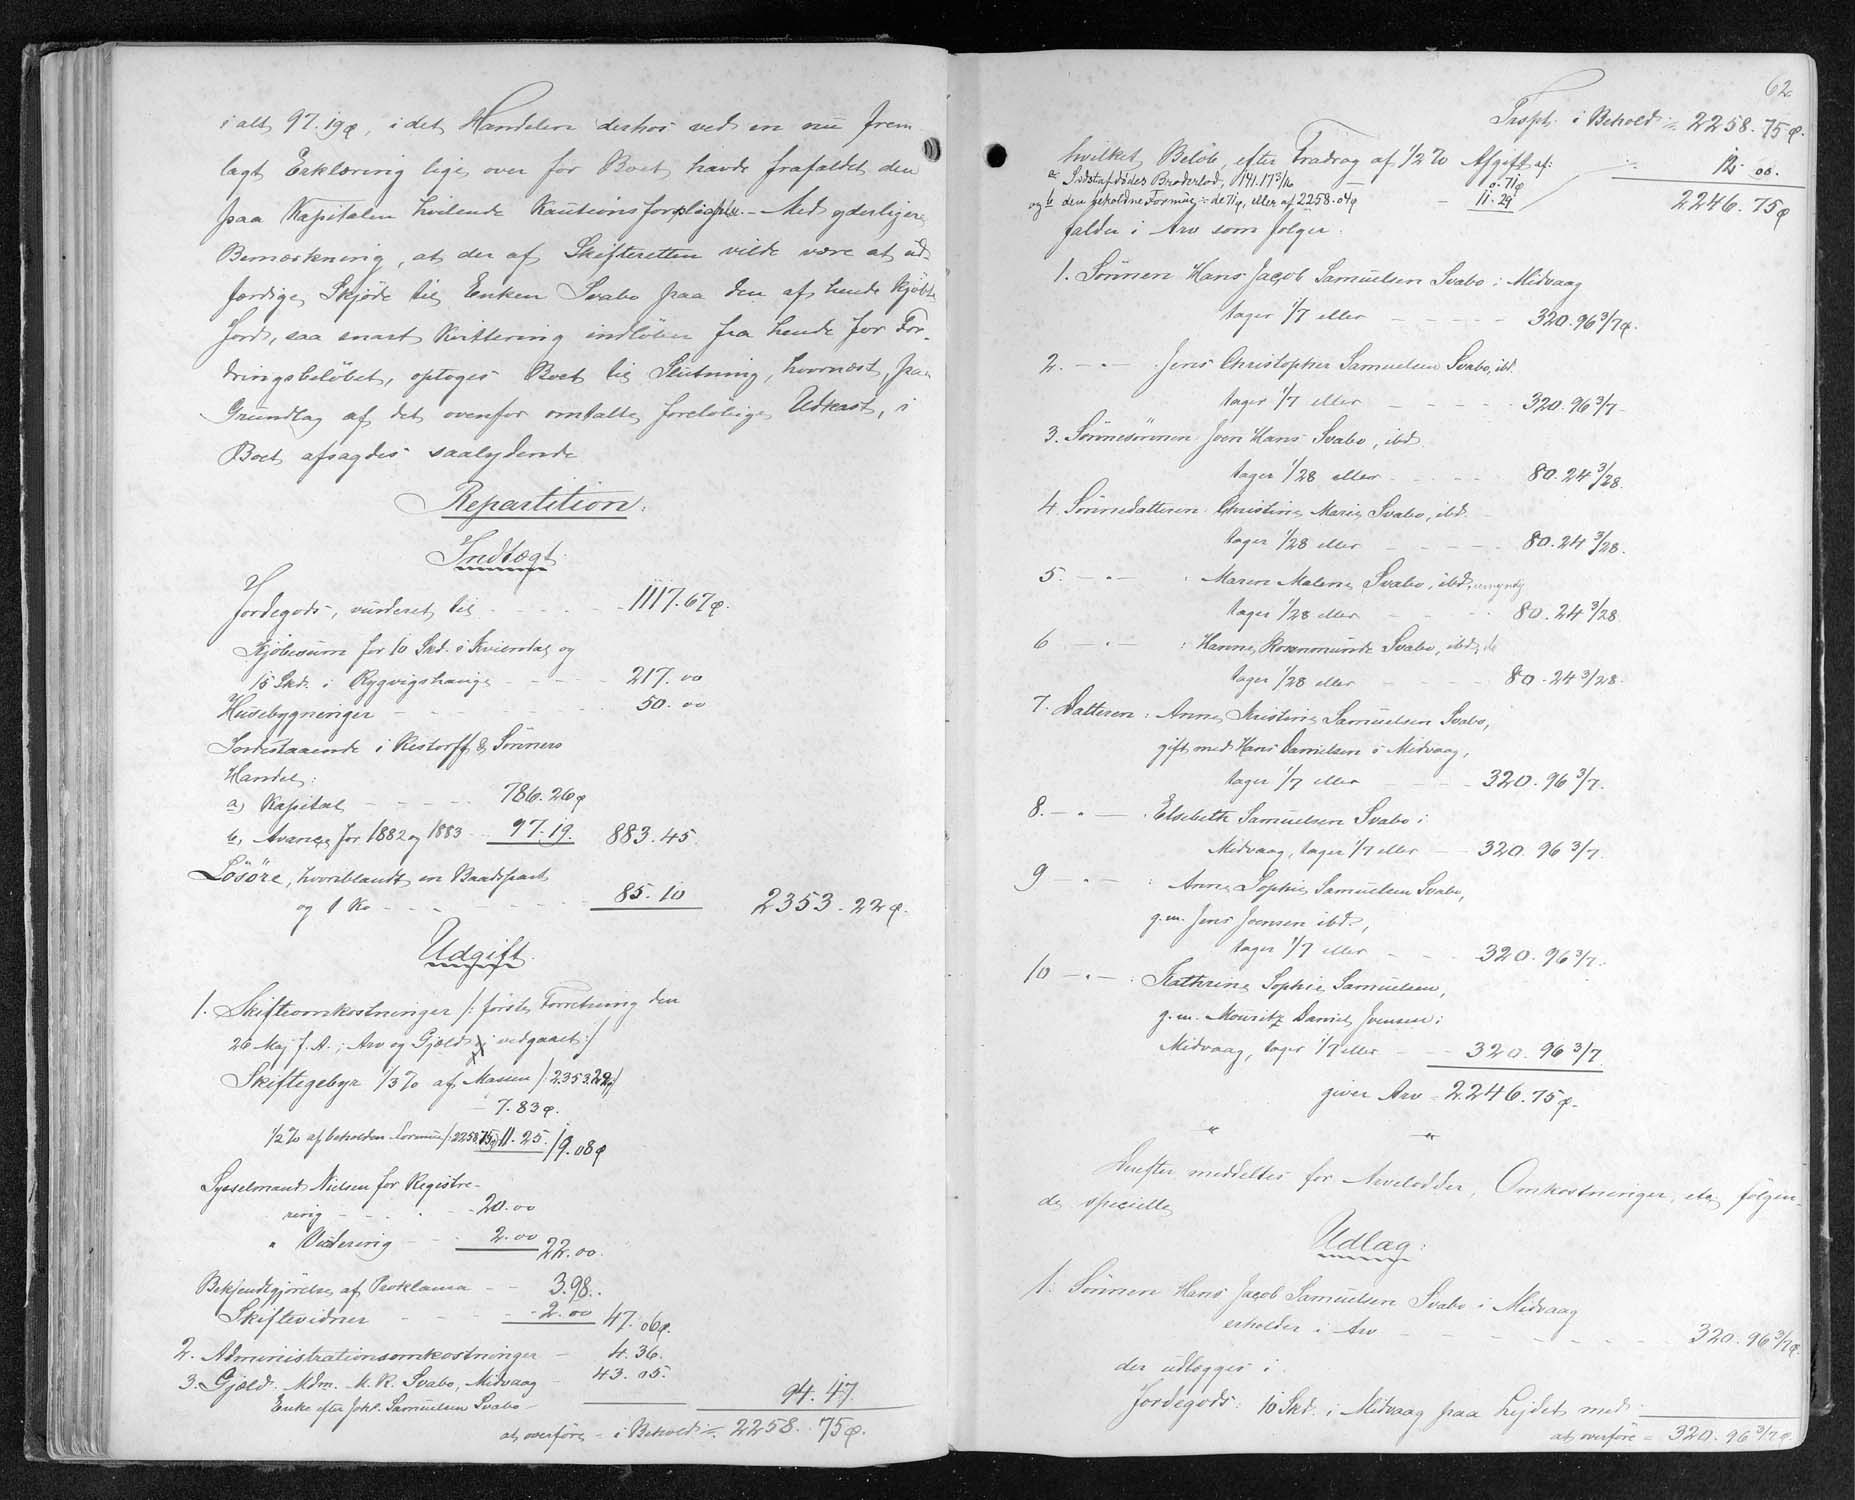 i alt 97.19ø, i det Handelen derhos ved en nu frem
lagt Erklæring lige over for Boet havde frafaldet den
paa Kapitalen hvilende Kautionsforpligtelse. – Med yderligere
Bemærkning, at der af Skifteretten vilde være at ud
færdige Skjøde til Enken Svabo paa den af hende kjøbte
Jord, saa snart Kvittering indløber fra hende for For-
dringsbeløbet, optoges Boet til Slutning, hvornæst, paa
Grundlag af det ovenfor omtalte foreløbige Udkast, i
Boet afsagdes saalydende
Repartition:
Indtægt.
Jordegods, vurderet til - - - - 1117.67ø.
Kjøbesum for 10 Skd. i Kviendal og
15 Skd. i Rygvigshauge - - - - 217.00
Husebygninger - - - - 50.00
Indestaaende i Restorff & Sønners
Handel:
a) Kapital - - - - 786.26ø
b, Avance for 1882 og 1883 - 97.19. 883.45
Løsøre, hvoriblandt en Baadspart
og 1 Ko - - - - 85.10 2353.22ø.
Udgift.
1. Skifteomkostninger /: første Forretning den
26 Maj f. A.; Arv og Gjæld ej vedgaaet :/
Skiftegebyr 1/3 % af Massen /: 2353.22ø :/
- 7.83ø.
1/2 % af beholden Formue /: 2258.75ø :/ 11.25. 19.08ø
Sysselmand Nielsen for Registre-
ring - - - - 20.00
" Vurdering - - 2.00 22.00.
Bekjendtgjørelse af Proklama - - 3.98.
Skiftevidner - - - - 2.00 47.06ø.
2. Administrationsomkostninger - 4.36.
3. Gjæld. Mdm. M. R. Svabo, Midvaag - 43.05.
Enke efter Jokl. Samuelsen Svabo - 94.47
at overføre - i Behold = 2258.75ø.
62.
Trspt. i Behold = 2258.75ø.
hvilket Beløb, efter Fradrag af 1/2 % Afgift af:
a. Sidstafdødes Broderlod, 141.17 3/16 - 0.71ø
og b den beholdne Formue ÷ de 71ø, eller af 2258.04ø - 11.29 12.00.
2246.75ø
falder i Arv som følger:
1. Sønnen Hans Jacob Samuelsen Svabo i Midvaag
tager 1/7 eller - - - - 320.96 3/7ø.
2. - " - : Jens Christopher Samuelsen Svabo, ibd.
tager 1/7 eller - - - - 320.96 3/7
3. Sønnesønnen Joen Hans Svabo, ibd.
tager 1/28 eller - - - - 80.24 3/28.
4. Sønnedatteren Christine Marie Svabo, ibd.
tager 1/28 eller - - - - 80.24 3/28.
5. - " - : Maren Malene Svabo, ibd., umyndig
tager 1/28 eller - - 80.24 3/28.
6 - " - : Hanne Rosenmunde Svabo, ibd.,
tager 1/28 eller - - - - 80.24 3/28.
7. Datteren: Anne Kristine Samuelsen Svabo,
gift med Hans Danielsen i Midvaag,
tager 1/7 eller - - - 320.96 3/7.
8. - " - : Elsebeth Samuelsen Svabo i
Midvaag, tager 1/7 eller - 320.96 3/7.
9 - " - : Anne Sophie Samuelsen Svabo,
g. m. Jens Joensen ibd.,
tager 1/7 eller - - - 320.96 3/7.
10 - " - : Kathrine Sophie Samuelsen,
g. m. Mouritz Daniel Joensen i
Midvaag, tager 1/7 eller - - 320.96 3/7
giver Arv = 2246.75ø.
" "
Derefter meddeltes for Arvelodder, Omkostninger, etc. følgen-
de specielle
Udlæg:
1. Sønnen Hans Jacob Samuelsen Svabo i Midvaag
erholder i Arv - - - - 320.96 3/7ø.
der udlægges i
Jordegods: 10 Skd. i Midvaag paa Lejdet med:
at overføre = 320.96 3/7ø.